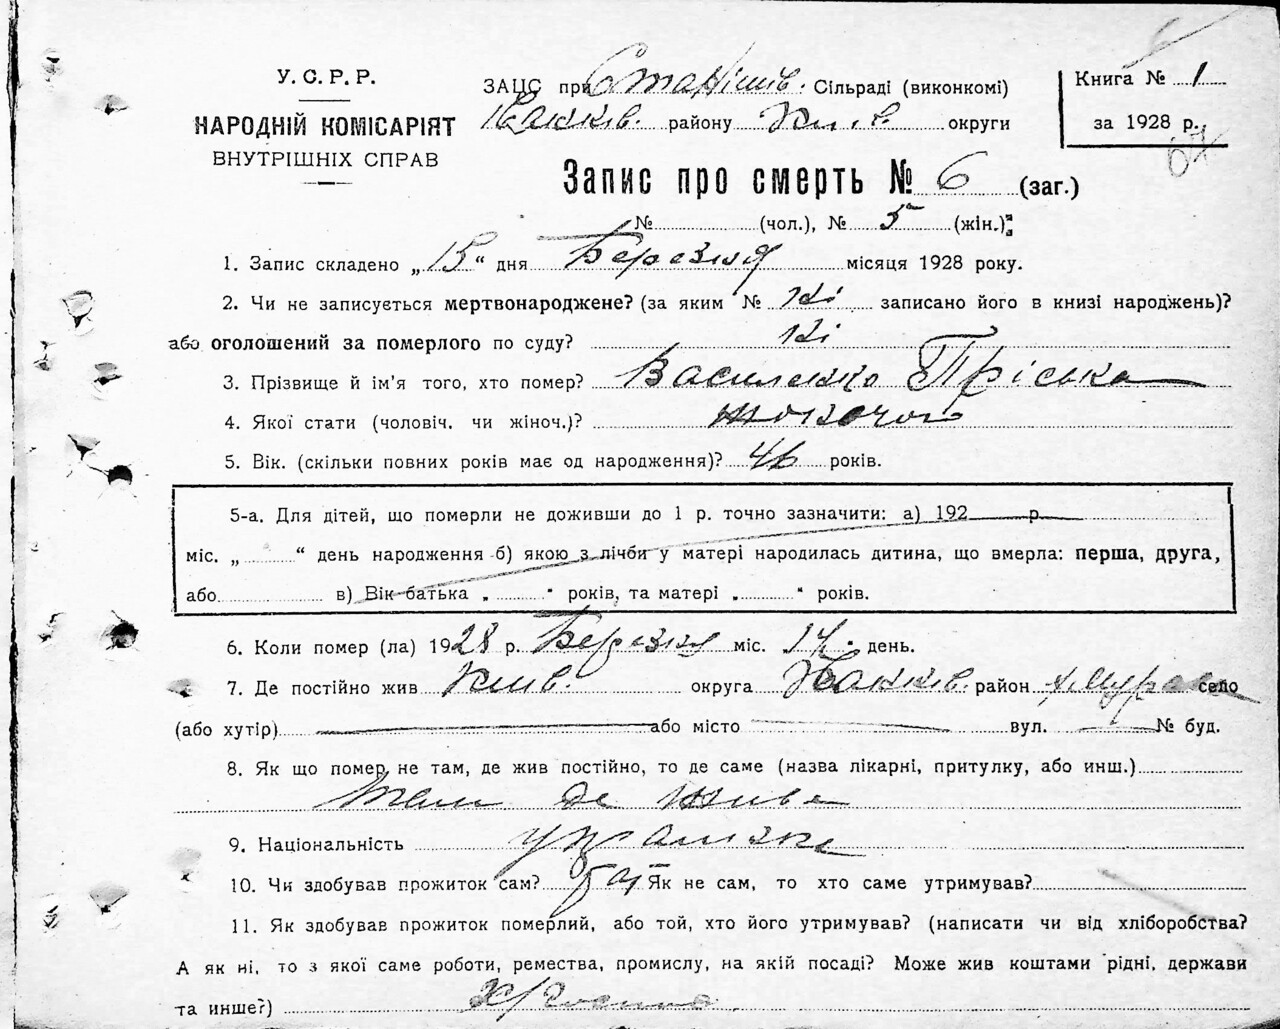 У. С. Р. Р.
НАРОДНІЙ КОМІСАРІЯТ
ВНУТРІШНІХ СПРАВ
ЗАЦС при Станішів. Сільраді (виконкомі)
району Київ. округи
Книга № 1
за 1928 р.
67
Запис про смерть № 6 (заг.)
№ (чол.), № 5 (жін.)
1. Запис складено „15“ дня Березня місяця 1928 року.
2. Чи не записується мертвонароджене? (за яким № ні записано його в книзі народжень)?
або оголошений за померлого по суду? ні
3. Прізвище й ім'я того, хто помер? Василенко Пріська
4. Якої стати (чоловіч. чи жіноч.)? жіночої
5. Вік. (скільки повних років має од народження)? 46 років.
5-а. Для дітей, що померли не доживши до 1 р. точно зазначити: а) 192 р.
міс. „ “ день народження б) якою з лічби у матері народилась дитина, що вмерла: перша, друга,
або в) Вік батька „ “ років, та матері „ “ років.
6. Коли помер (ла) 1928 р. Березня міс. 14 день.
7. Де постійно жив Київ. округа район село
(або хутір) або місто вул. № буд.
8. Як що помер не там, де жив постійно, то де саме (назва лікарні, притулку, або инш.)
там де жила
9. Національність українка
10. Чи здобував прожиток сам? Як не сам, то хто саме утримував?
11. Як здобував прожиток померлий, або той, хто його утримував? (написати чи від хліборобства?
А як ні, то з якої саме роботи, ремества, промислу, на якій посаді? Може жив коштами рідні, держави
та инше?)